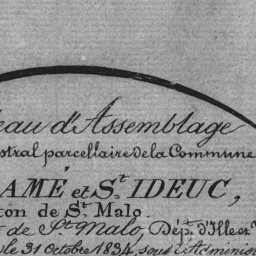 eau d'Assemblage
stral parcellaire de la Commune
AMÉ et St. IDEUC,
ton de St. Malo.
t de St. Malo, Dépt. d'Ille et V
le 31 Octobre 1834, sous l'Adminion